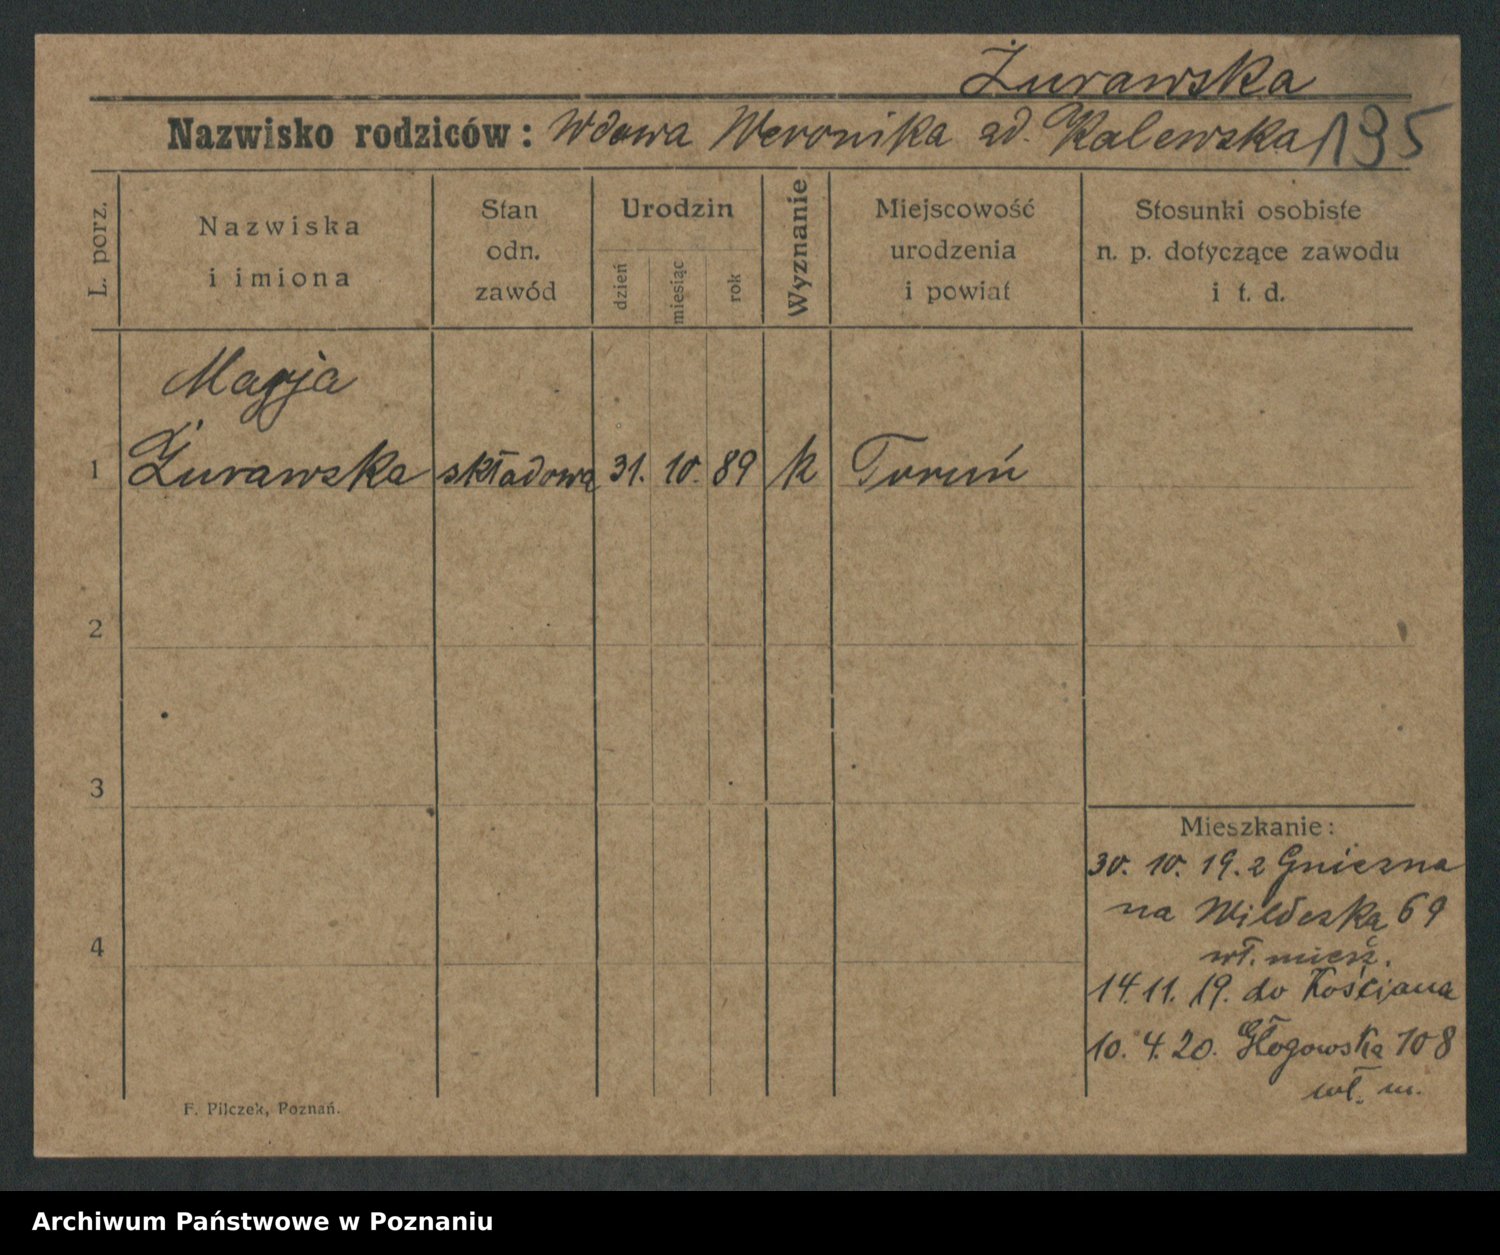 Żurawska
Nazwisko rodziców: Wdowa Weronika ad. Kalewska 195
L. porz.
Nazwiska
i imiona
Stan
odn.
zawód
Urodzin
dzień
miesiąc
rok
Wyznanie
Miejscowość
urodzenia
i powiat
Stosunki osobiste
n. p. dotyczące zawodu
i t. d.
Marja
1 Żurawska składowa 31. 10. 89 k Toruń
2
3
4
Mieszkanie:
30. 10. 19. z Gniezna
na Wildezka 69
wł. miesz.
14. 11. 19. do Kościana
10. 4. 20. Głogowska 108
wł. m.
F. Pilczek, Poznań.
Archiwum Państwowe w Poznaniu